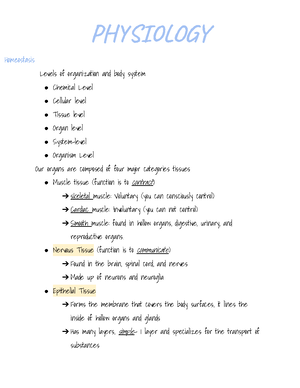 PHYSIOLOGY
Homeostasis
Levels of organization and body system
● Chemical Level
● Cellular level
● Tissue level
● Organ level
● System-level
● Organism Level
Our organs are composed of four major categories tissues
● Muscle tissue (function is to contract)
➔ Skeletal muscle: Voluntary (you can consciously control)
➔ Cardiac muscle: Involuntary (you can not control)
➔ Smooth muscle: found in hollow organs, digestive, urinary, and
reproductive organs
● Nervous Tissue (function is to communicate)
➔ Found in the brain, spinal cord, and nerves
➔ Made up of neurons and neuroglia
● Epithelial Tissue
➔ Forms the membrane that covers the body surfaces, it lines the
inside of hollow organs and glands
➔ Has many layers, simple- 1 layer and specializes for the transport of
substances